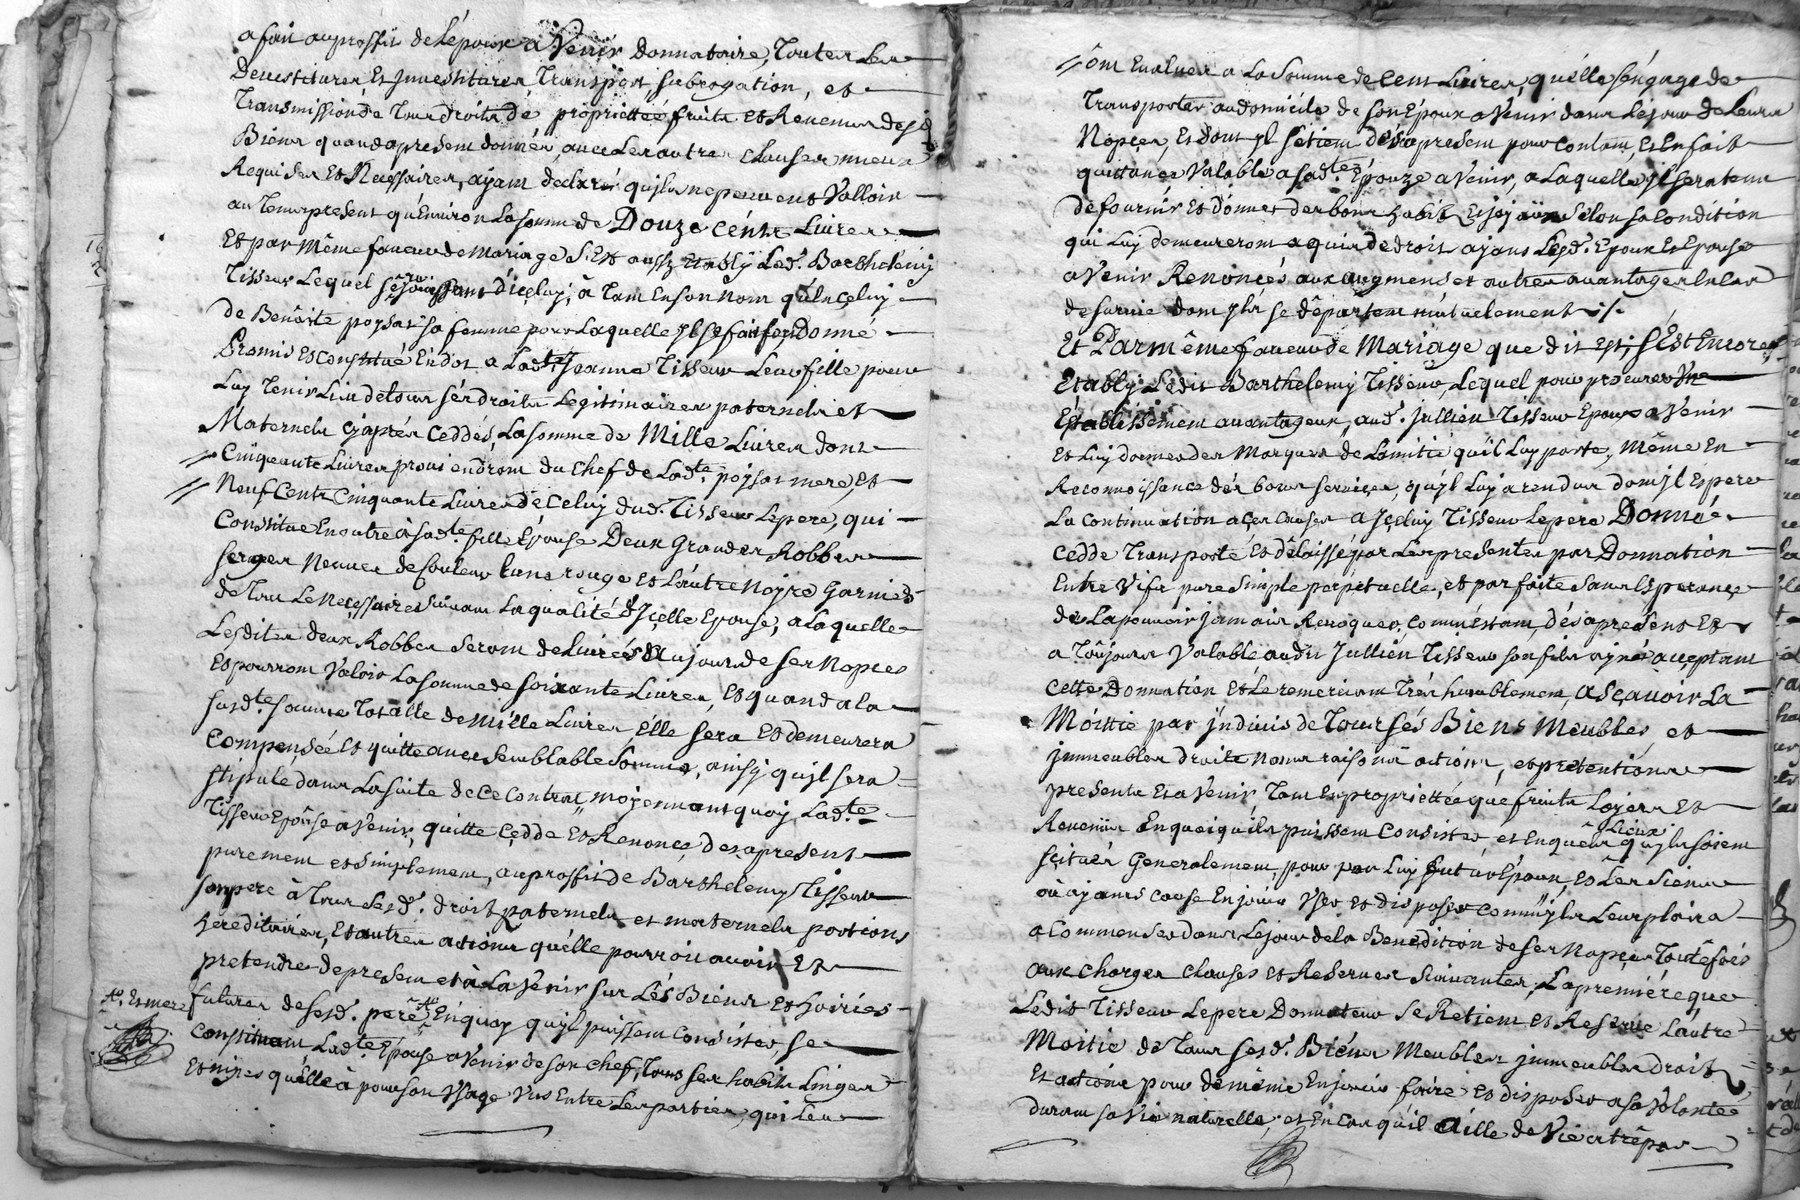 a fait au proffit de l'époux a Venir donnataire, Toutes Les
Devestitures Et jnvestitures Transport, subrogation, et
Transmission de Tous droits de propriettée fruits et Revenus desd
Biens quand apresent donnés, avec Les autres Clauses mieux
Requises et Necessaires, ayant declaré qu'jls ne peuvent Valloir
au Tems present qu'Environ La somme de Douze cents Livres
Et par même faveur de mariage S'Est aussy Etably Led. Barthelémy
Tisseur Lequel d'jceluy, à Tant En son nom qu'en celuy
de Benoite poysat sa femme pour Laquelle jl se fait fort donné
Promis et constitué En dot a Ladte Jeanne Tisseur Leur fille pour
Luy Tenir Lieu de tous sés droits Legitimaires paternels et
Maternels cy après Ceddés, La somme de Mille Livres dont
Cinquante Livres proviendront du chef de Ladte. poysat mere, et
Neuf Cents Cinquante Livres de Celuy dud. Tisseur Le pere, qui
Constitue En outre à sadte. fille Epouse Deux Grandes Robbes
serges Neuves de Couleur L'une rouge et L'autre Nojre Garnies
de Tout Le Necessaire suivant La qualité d'Jcelle Epouse, a Laquelle
Lesdites deux Robbes seront delivrées au jour de ses Nopces
Et pourront Valoir La somme de soixante Livres, et quand a la
susdte. somme Totalle de Mille Livres, Elle sera et demeurera
Compensée et quitte avec semblable Somme, ainsy qu'jl sera
stipulé dans La suite de Ce Contrat, moyennant quoy Ladte.
Tisseur Epouse a Venir quitte Cedde et Renonce des apresent
purement et simplement, au proffit de Barthelemy Tisseur
son pere à Tous Sesd. droits paternels et maternels portions
hereditaires, et autres actions qu'elle pourroit avoir Et
pretendre de present et à La Venir sur Lés Biens et hoiries
Et mere futures de sesd. pere En quoy qu'jl puissent Consister, se
Constituant Ladte. Epouse a Venir de son Chef, Tous ses habits Linges
Et nipes qu'elle à pour son Vsage Vus Entre Les parties, qui Les
ônt Evalués a La Somme de Cent Livres, qu'elle s'éngage de
Transporter au domicile de son Epoux a Venir dans Le jour de Leurs
Nopces, Et dont jl se tient dés apresent pour Contant, et En fait
quittance Valable a sadte. Epouze a Venir, a Laquelle jl sera tenu
de fournir et donner des bons habits et joyaux selon sa Condition
qui Luy demeureront a qui de droit ayant Lesd. Epoux Et Epouse
a Venir Renoncés aux augments et autres avantages
de survie dont jls se départent mutuelement ./.
Et Par même faveur de Mariage que dit est, s'Est Encores
Etably Ledit Barthelemy Tisseur, Lequel pour procurer Vn
Etablissement avantageux, aud. Jullien Tisseur Epoux a Venir
Et Luy donner des Marques de L'amitié qu'il Luy porte, même En
Reconnoissance dés bons services, qu'jl Luy a rendus dont jl Espere
La Continuation a ces Causes a jceluy Tisseur Le pere Donné
Cedde Transporté et Délaissé par Les presentes par Donnation
Entre Vifs pure Simple perpetuelle, et parfaite sans Esperance
de La pouvoir jamais Revoquer, Comm'étant, dés apresent Et
a Toujours Valable audit Jullien Tisseur son fils ayné acceptant
Cette Donnation Et Le remerciant Très humblement, a sçavoir La
Moittié par jndivis de Tous sés Biens Meubles et
jmmeubles droits noms raisons actions, et pretentions
presents Et a Venir, Tant En propriettée que fruits Loyers Et
Revenus En quoi qu'ils puissent Consister, et En quels Lieux qu'jls soient
scitués Generalement, pour par Luy futur Epoux, et Les Siens
ou ayants cause En jouir Vser et disposer Comm'jls Leur plaira
a Commencer dans Le jour de la Benediction de ses Nopces Toutêfois
aux Charges Clauses et Reserves suivantes, La premiére que
Ledit Tisseur Le pere Donnateur se Retient et Reserve L'autre
Moitié de Tous sesd. Biéns Meubles jmmeubles droits
Et actions pour de même En jouir faire et disposer a sa Volontée
durant sa Vie naturelle, et En Cas qu'il aille de Vie a trépas